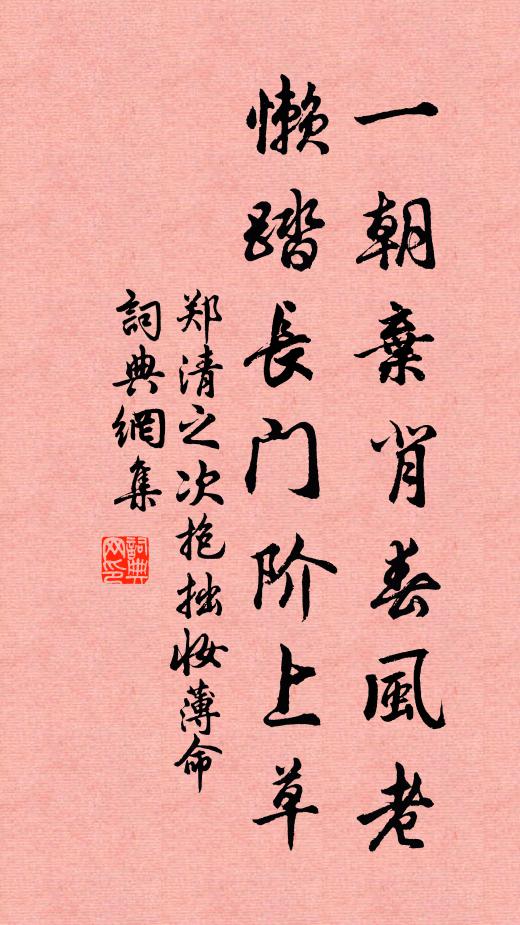 一朝棄背春風老
懶踏長门阶上草
郑清之次抱拙妆薄命
詞典網集
詞典网印